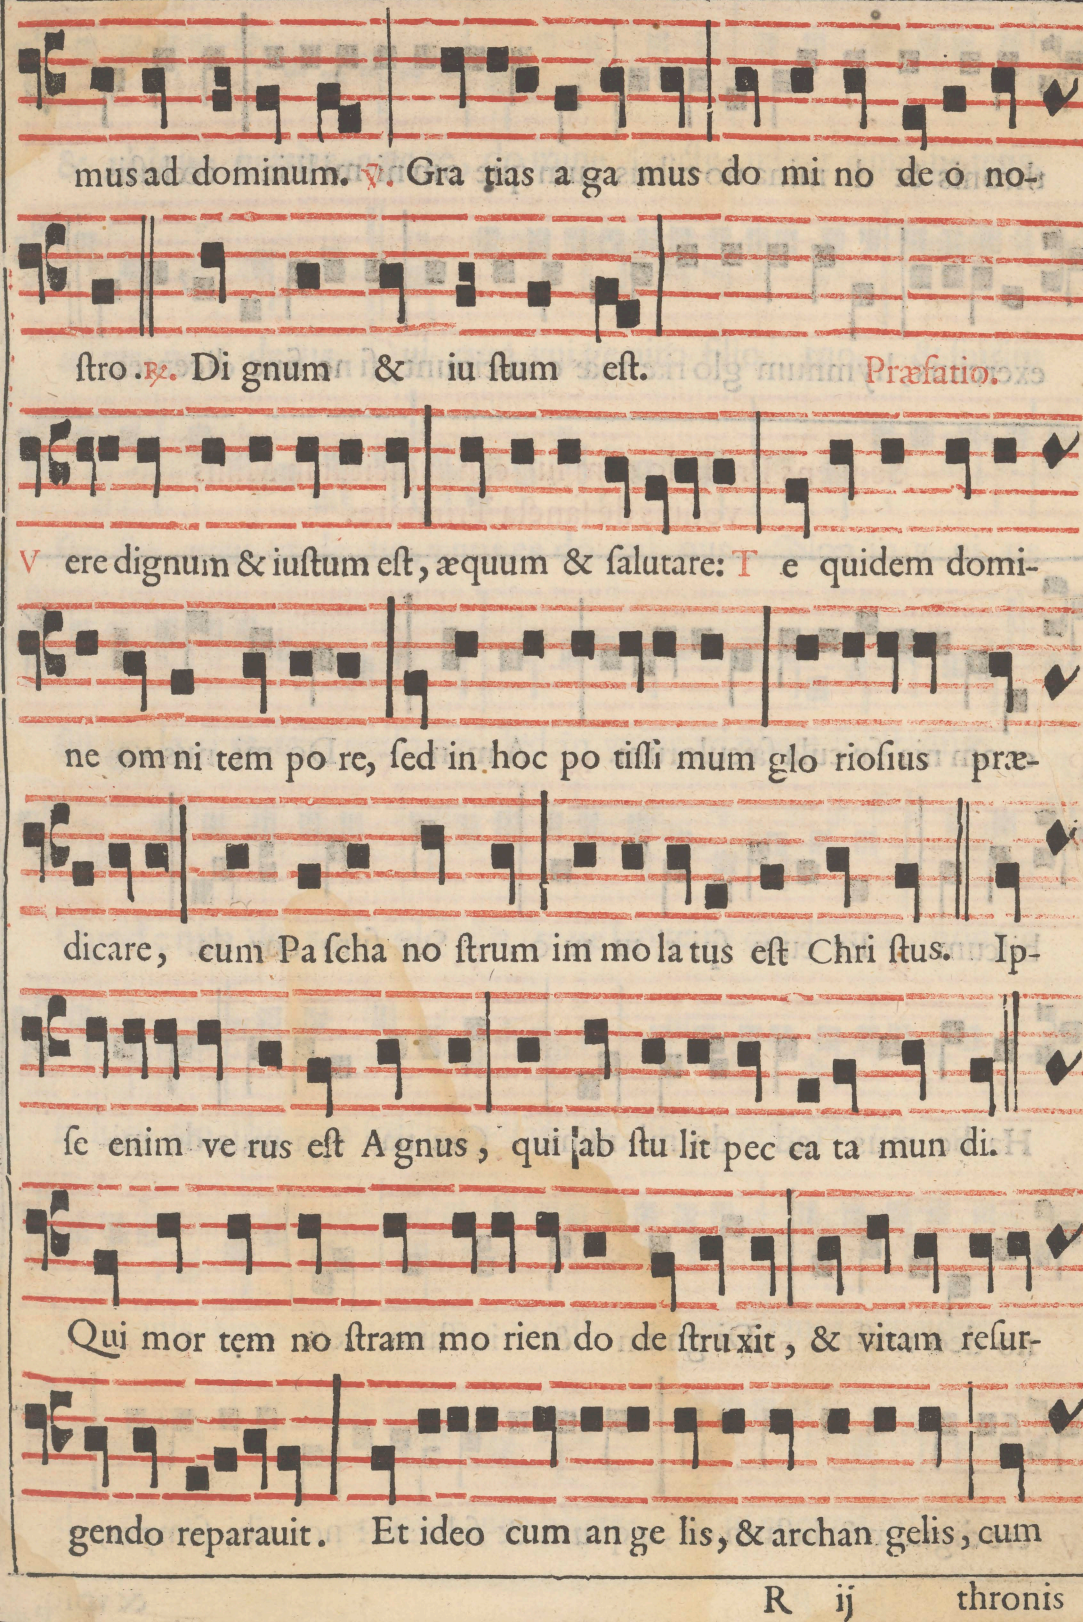 mus ad dominum. ℣. Gra tias a ga mus do mi no de o no-
ſtro. ℟. Di gnum & iu ſtum eſt. Præfatio.
V ere dignum & iuſtum eſt, æquum & ſalutare: T e quidem domi-
ne om ni tem po re, ſed in hoc po tiſſi mum glo rioſius præ-
dicare, cum Pa ſcha no ſtrum im mo la tus eſt Chri ſtus. Ip-
ſe enim ve rus eſt A gnus, qui ab ſtu lit pec ca ta mun di.
Qui mor tem no ſtram mo rien do de ſtru xit, & vitam reſur-
gendo reparauit. Et ideo cum an ge lis, & archan gelis, cum
R ij thronis